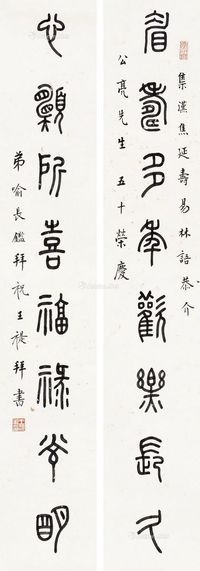 集漢焦延壽易林語恭介
眉壽多年歡樂長久
公亮先生五十榮慶
心願所喜福祿光明
弟喻長鑑拜祝王禔拜書